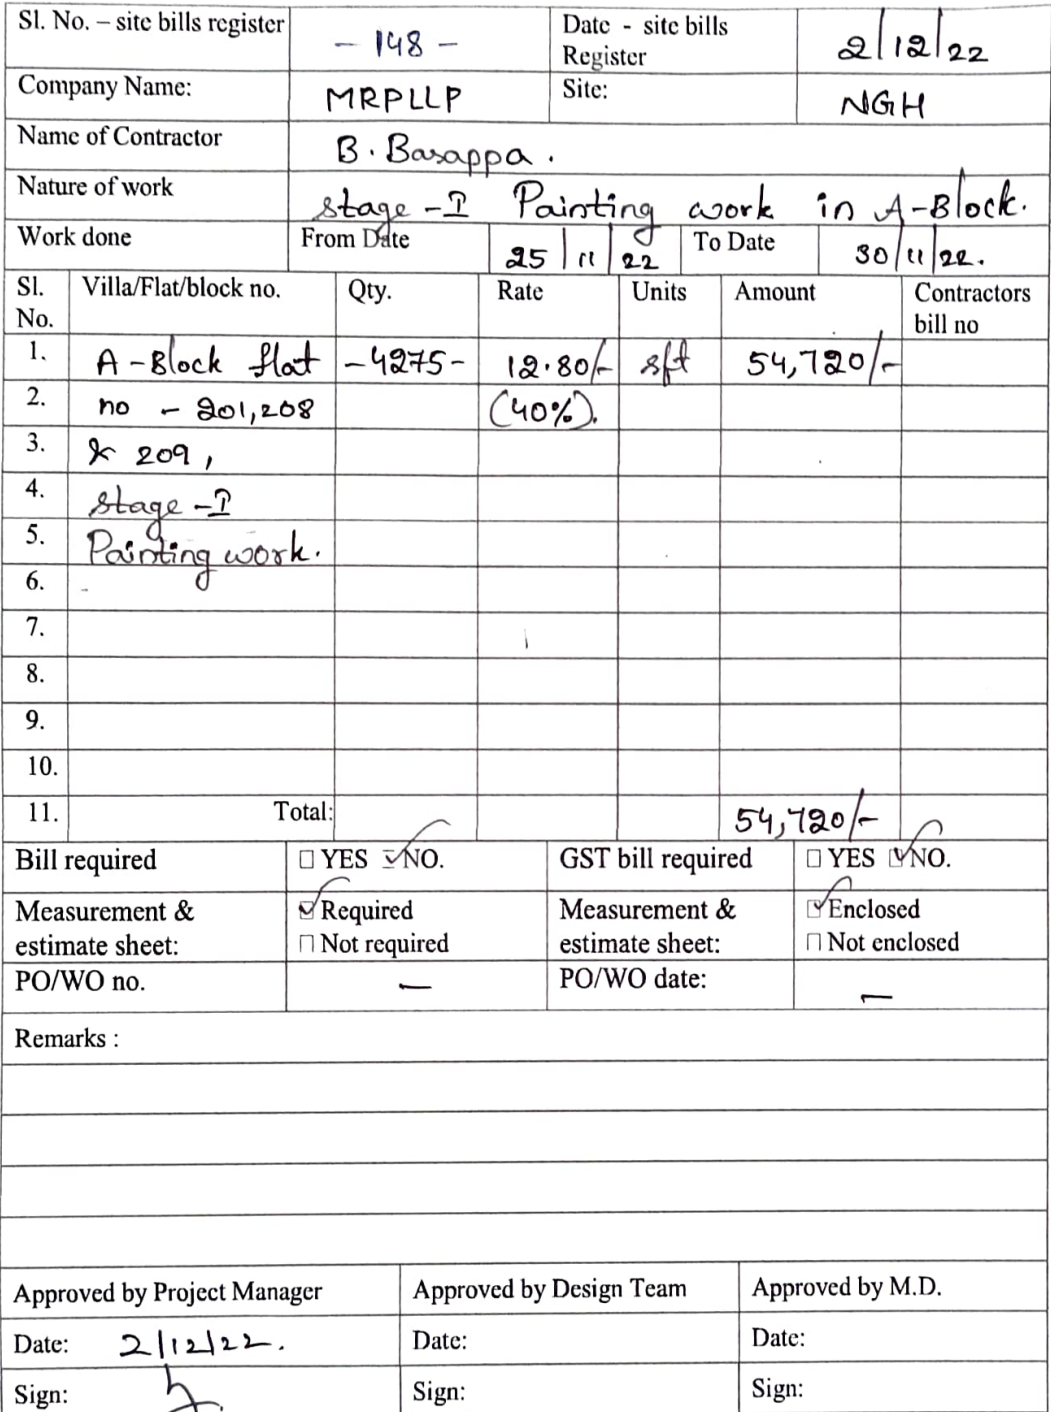 Sl. No. – site bills register - 148 - Date - site bills Register 2/12/22
Company Name: MRPLLP Site: NGH
Name of Contractor B. Basappa.
Nature of work stage - I Painting work in A-Block.
Work done From Date 25/11/22 To Date 30/11/22.
Sl. No. Villa/Flat/block no. Qty. Rate Units Amount Contractors bill no
1. A - Block flat -4275- 12.80/- sft 54,720/-
2. no - 201,208 (40%).
3. & 209,
4. stage - I
5. Painting work.
6.
7.
8.
9.
10.
11. Total: 54,720/-
Bill required ☐ YES ☑ NO. GST bill required ☐ YES ☑ NO.
Measurement & estimate sheet: ☑ Required ☐ Not required Measurement & estimate sheet: ☑ Enclosed ☐ Not enclosed
PO/WO no. — PO/WO date: —
Remarks :
Approved by Project Manager Approved by Design Team Approved by M.D.
Date: 2/12/22. Date: Date:
Sign: Sign: Sign: